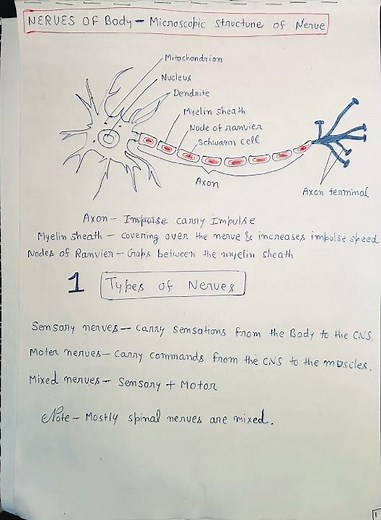 NERVES OF Body - Microscopic structure of Nerve
Mitochondrion
Nucleus
Dendrite
Myelin sheath
Node of ranvier
Schwann cell
Axon
Axon terminal
Axon - Impulse carry Impulse
Myelin sheath - covering over the nerve & increases impulse speed
Nodes of Ranvier - Gaps between the myelin sheath
1 Types of Nerves
Sensory nerves - Carry sensations from the Body to the CNS.
Moter nerves - Carry commands from the CNS to the muscles.
Mixed nerves - Sensory + Motor
Note - Mostly spinal nerves are mixed.